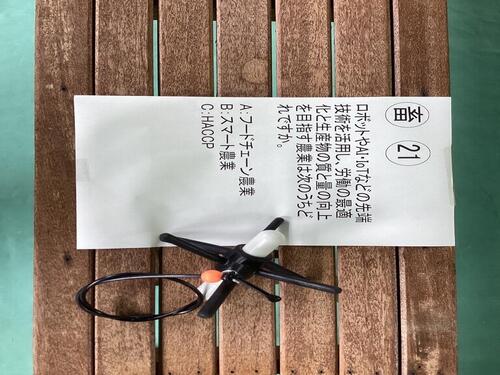 畜 21
ロボットやAI・IoTなどの先端
技術を活用し、労働の最適
化と生産物の質と量の向上
を目指す農業は次のうちど
れですか。
A:フードチェーン農業
B:スマート農業
C:HACCP